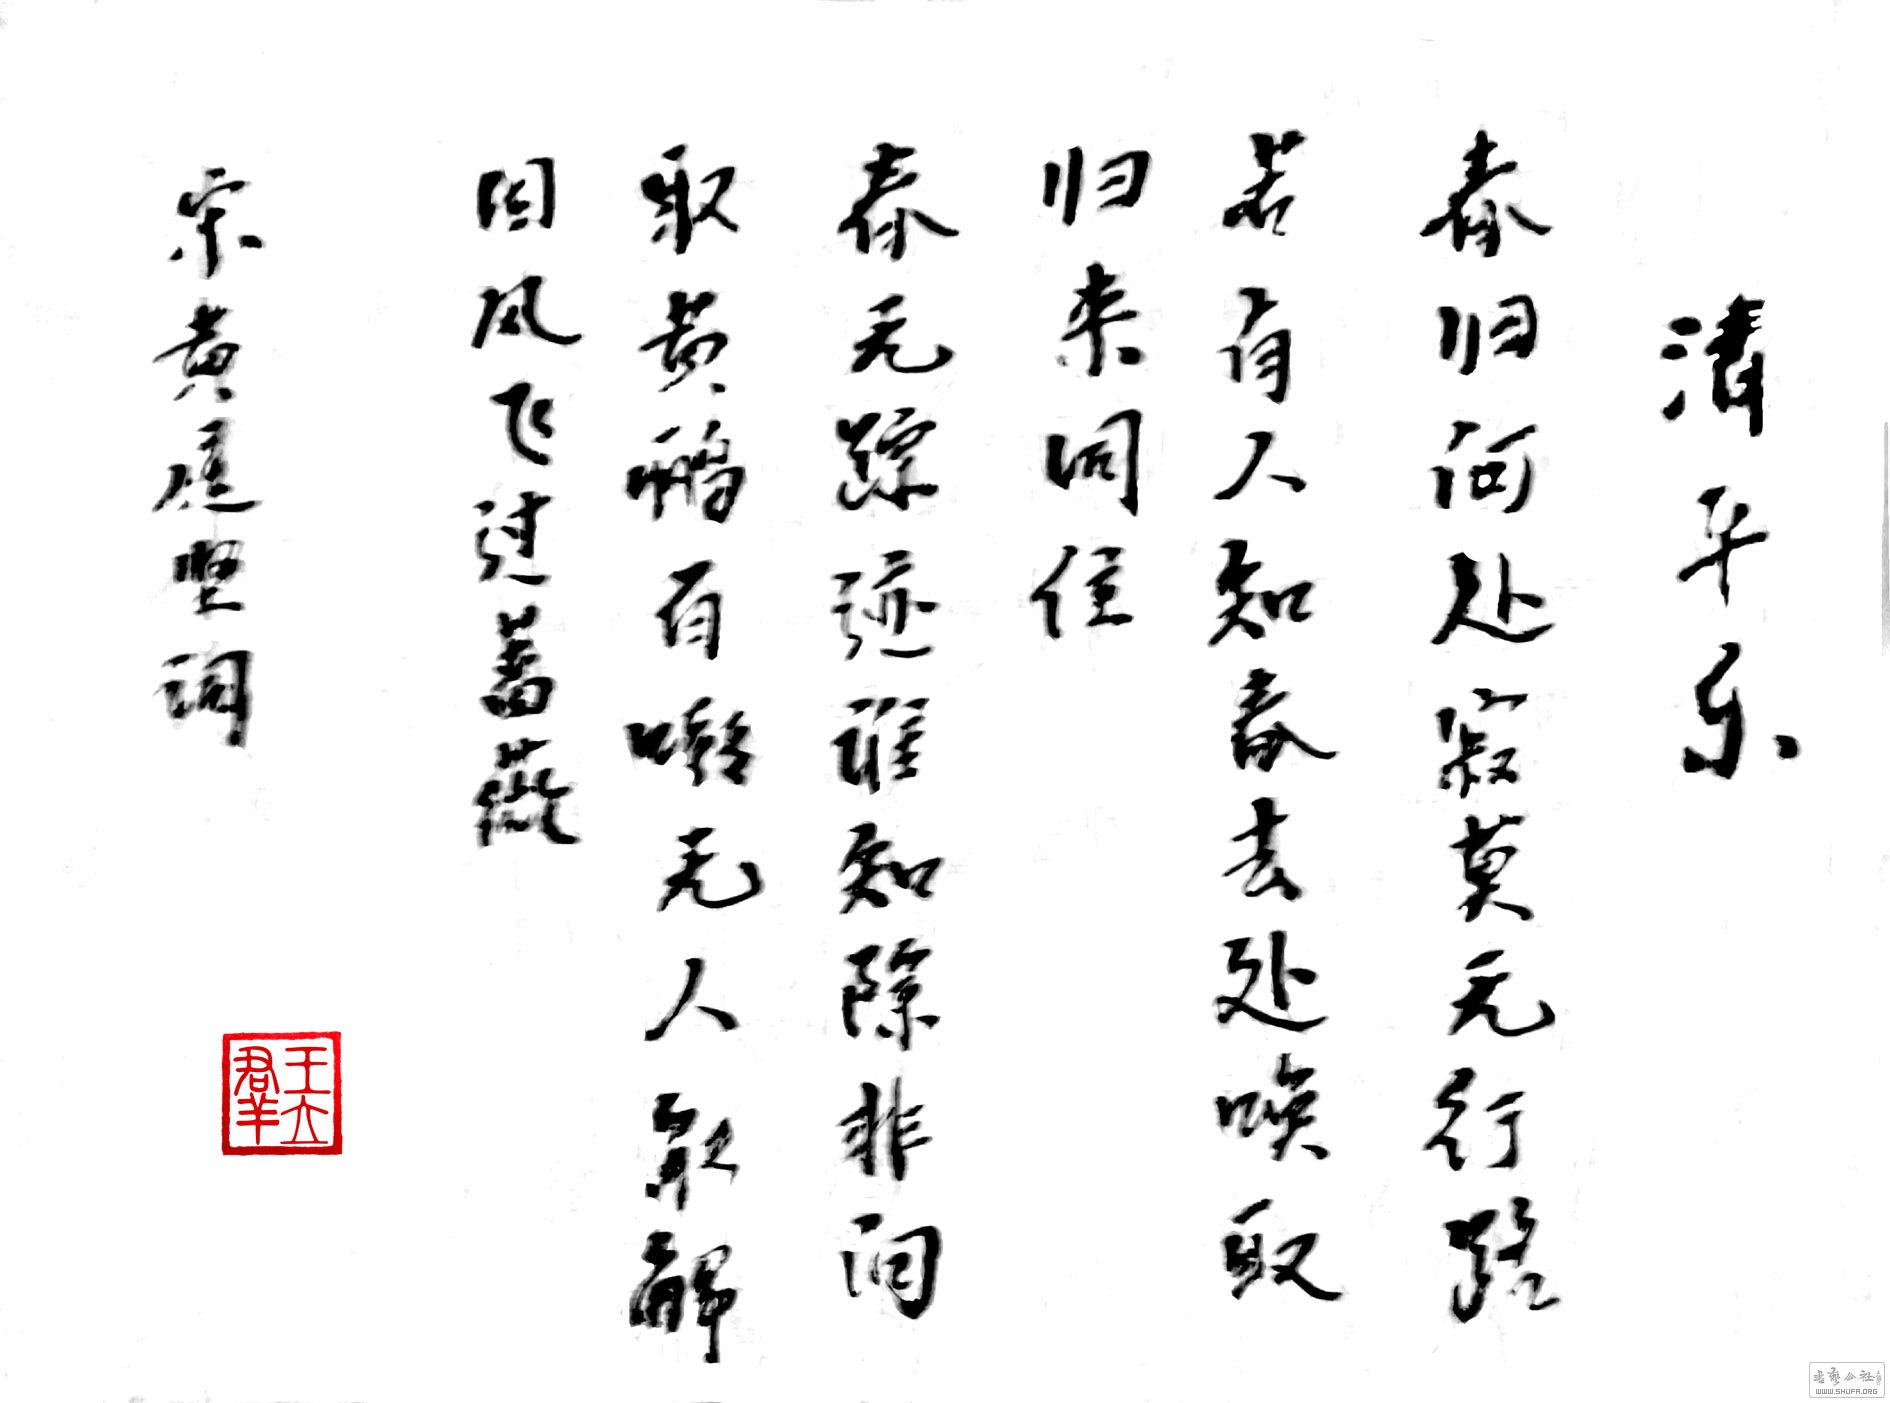 清平乐
春归何处寂莫无行路
若有人知春去处唤取
归来同住
春无踪迹谁知除非问
取黄鹂百啭无人能解
因风飞过蔷薇
宋黄庭坚词
王立群
书艺公社
WWW.SHUFA.ORG